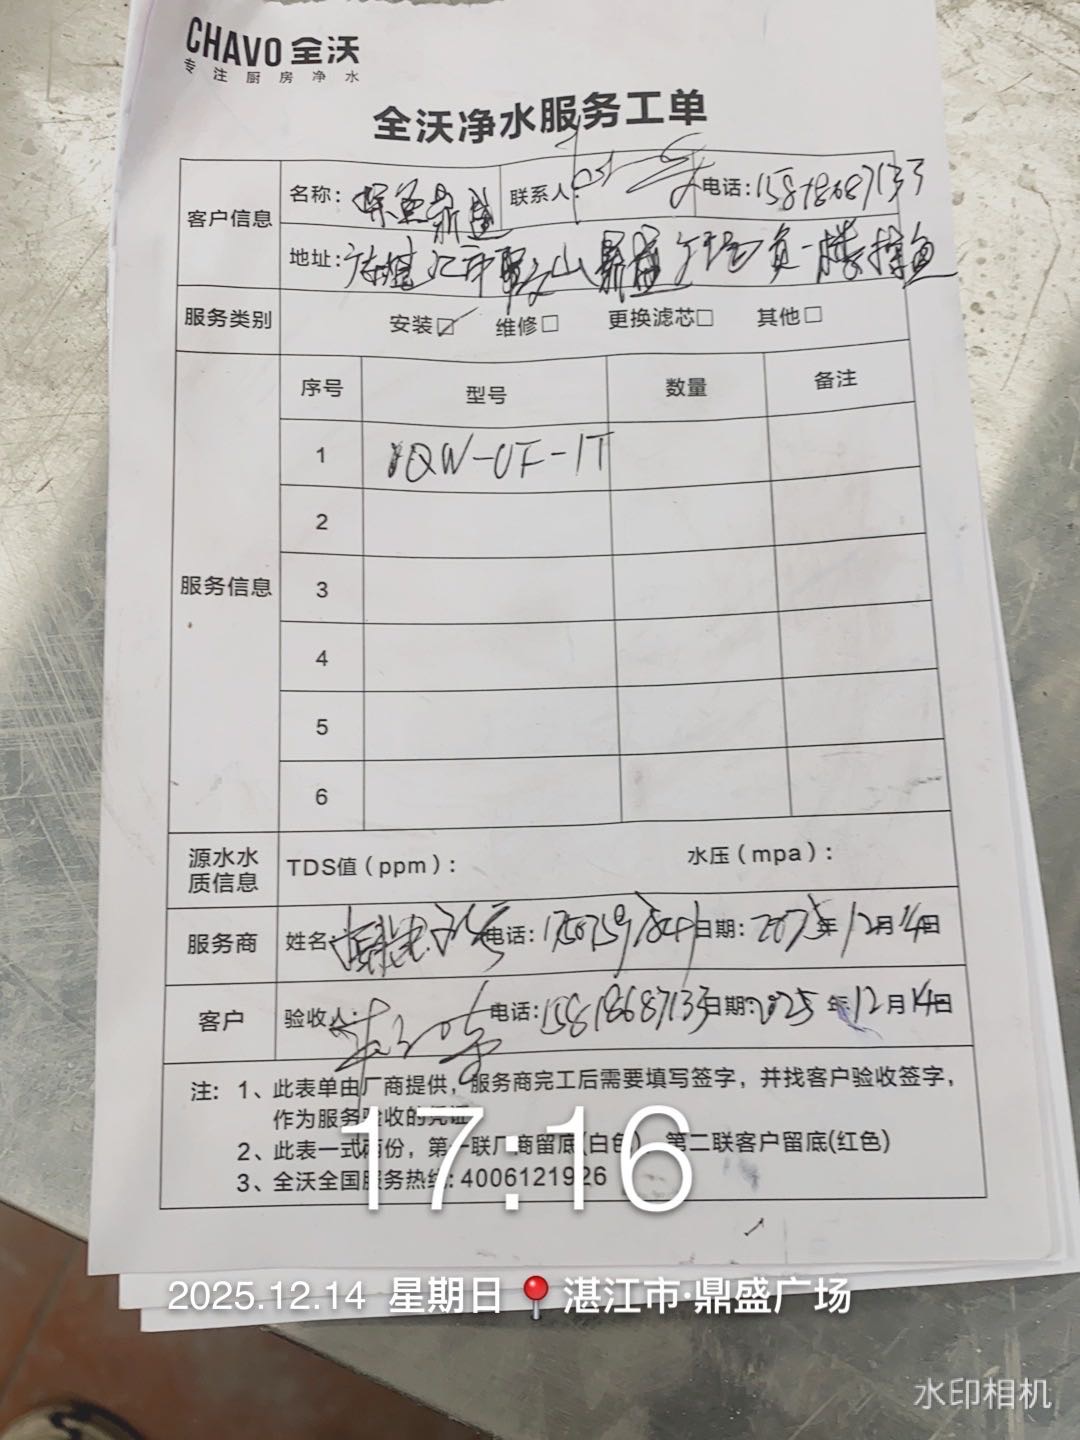 CHAVO 全沃
专注厨房净水
全沃净水服务工单
客户信息 名称：探鱼鼎盛 联系人： 电话：15818687133
地址：湛江市 鼎盛广场负一楼探鱼
服务类别 安装☑ 维修□ 更换滤芯□ 其他□
服务信息 序号 型号 数量 备注
1 QW-UF-1T
2
3
4
5
6
源水水质信息 TDS值（ppm）： 水压（mpa）：
服务商 姓名： 电话： 日期：2025年12月14日
客户 验收人： 电话：15818687133 日期：2025年12月14日
注： 1、此表单由厂商提供，服务商完工后需要填写签字，并找客户验收签字，
作为服务验收的凭证
2、此表一式两份，第一联厂商留底(白色)，第二联客户留底(红色)
3、全沃全国服务热线：4006121926
17:16
2025.12.14 星期日 湛江市·鼎盛广场
水印相机